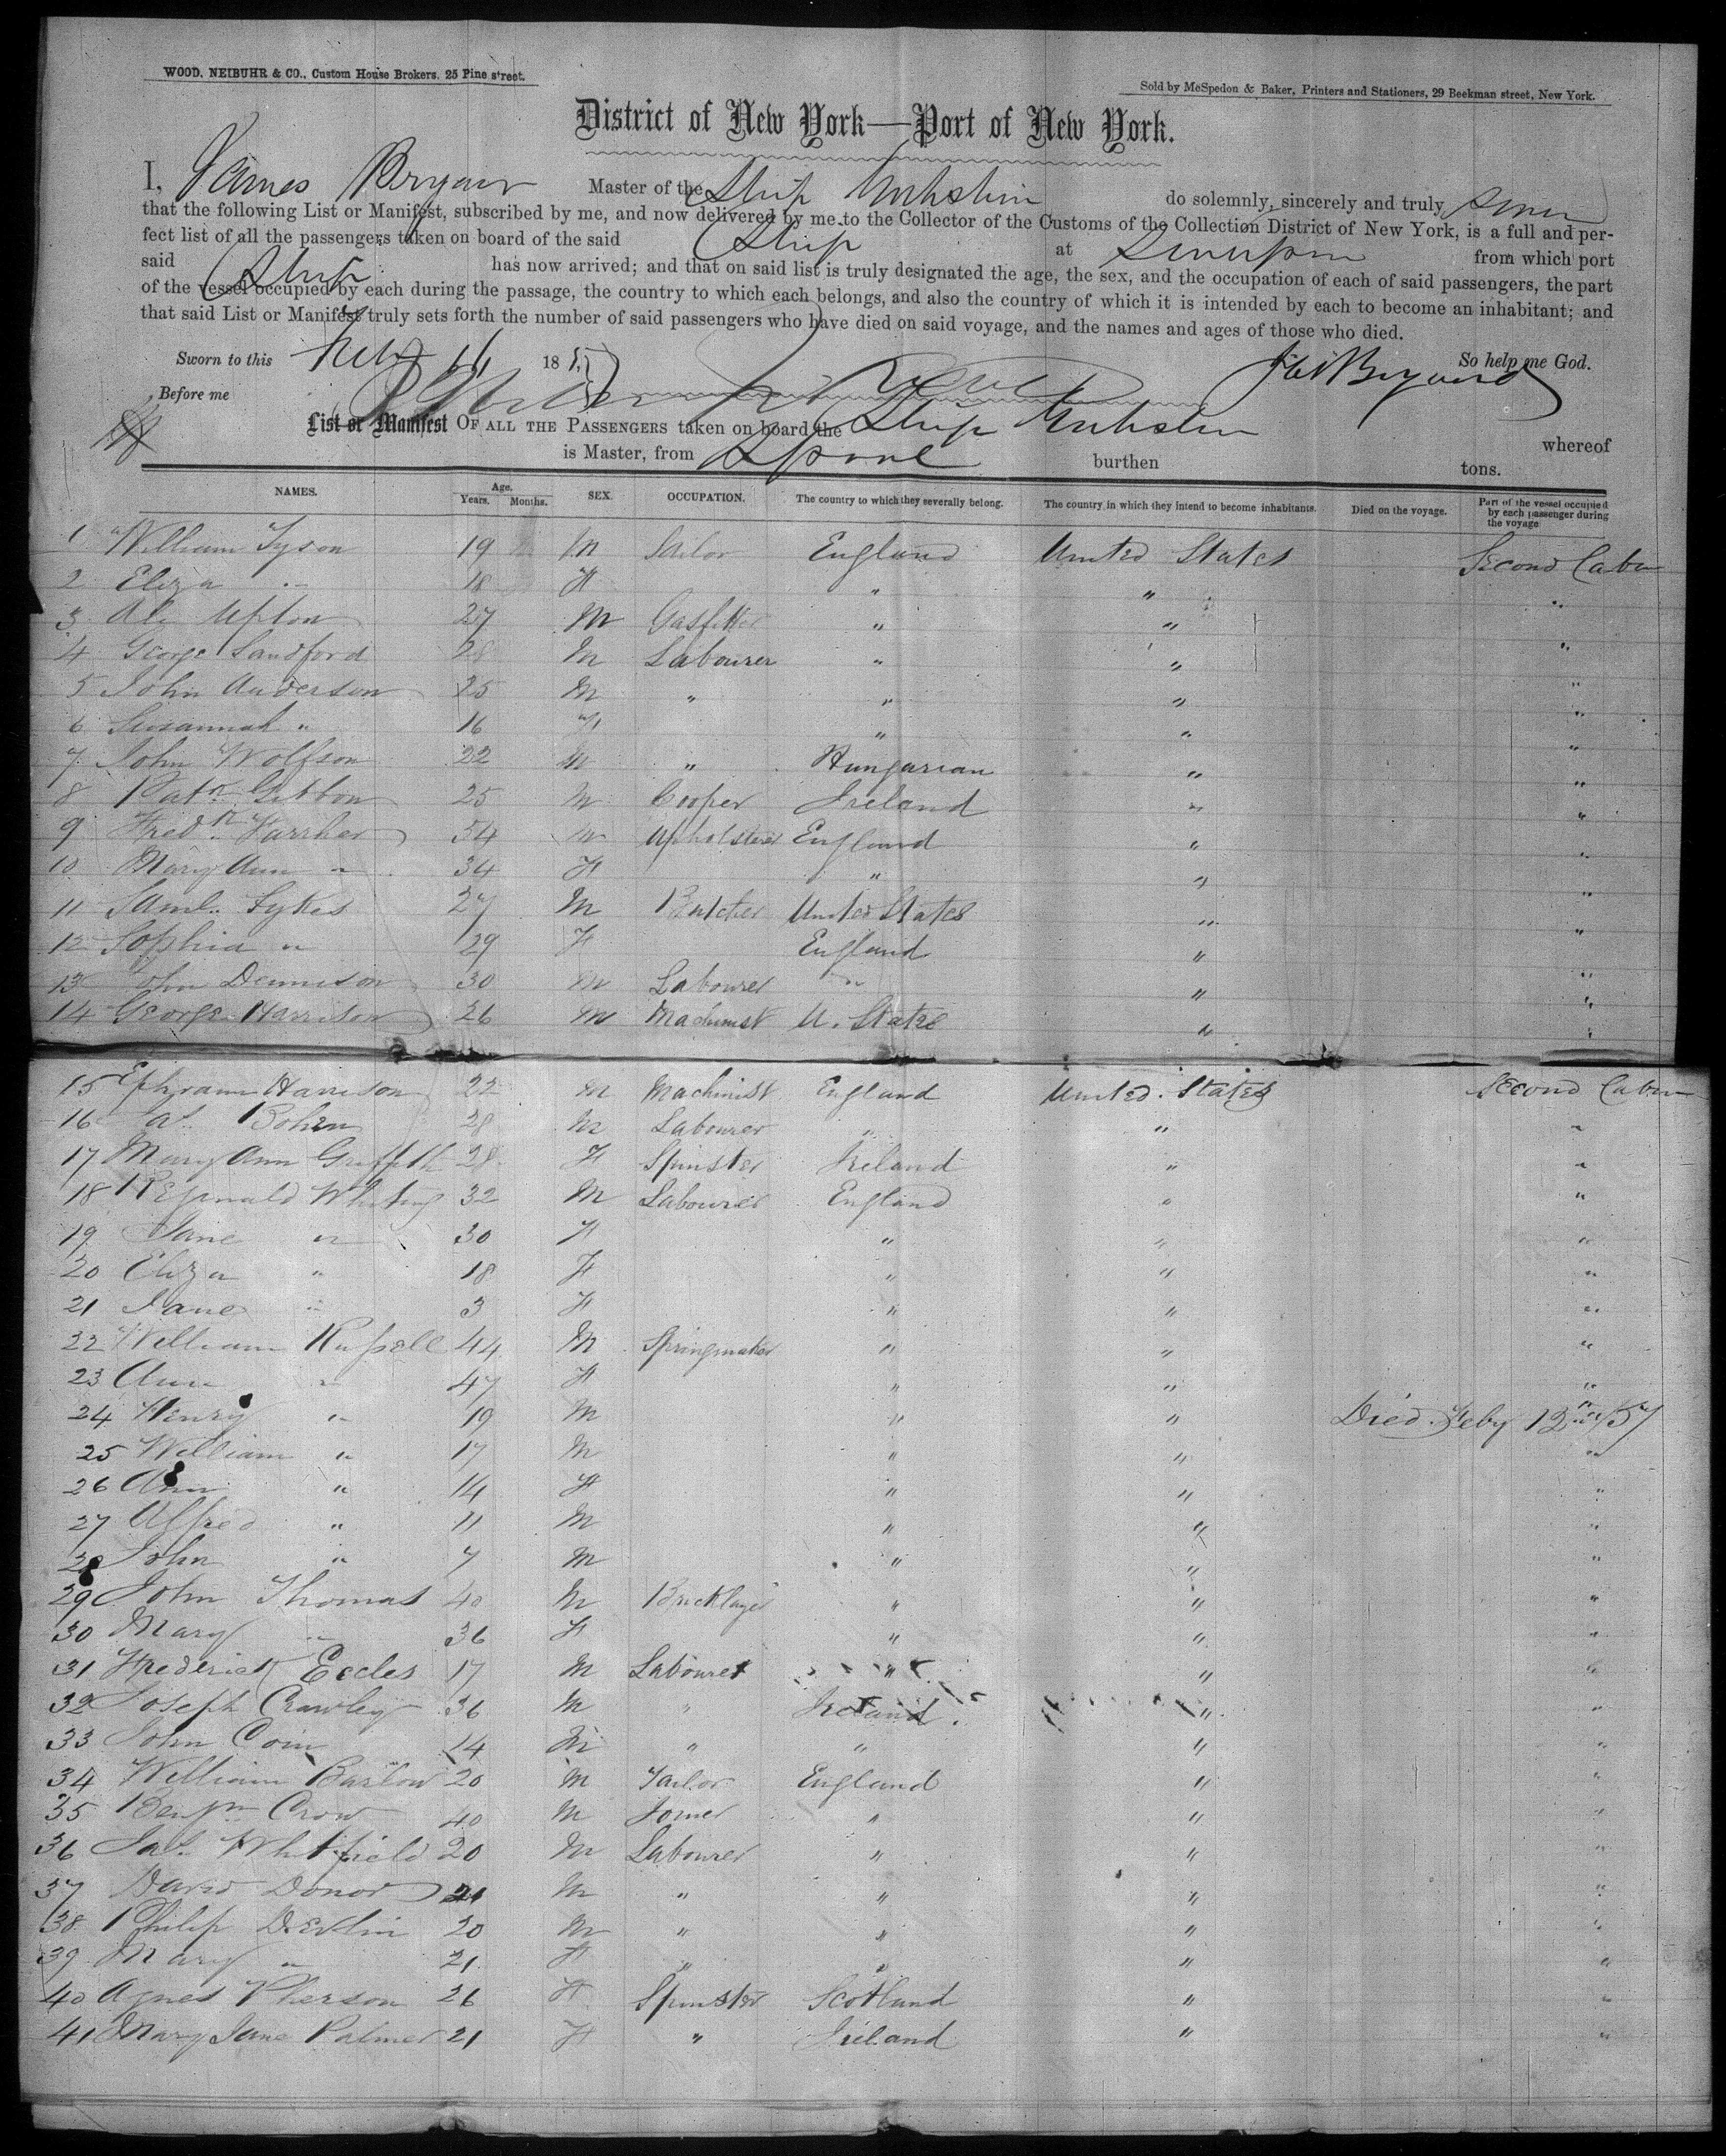 WOOD, NEIBUHR & CO., Custom House Brokers, 25 Pine street.
Sold by McSpedon & Baker, Printers and Stationers, 29 Beekman street, New York.
District of New York—Port of New York.
I, James Master of the Ship do solemnly, sincerely and truly
that the following List or Manifest, subscribed by me, and now delivered by me to the Collector of the Customs of the Collection District of New York, is a full and per-
fect list of all the passengers taken on board of the said Ship at from which port
said Ship has now arrived; and that on said list is truly designated the age, the sex, and the occupation of each of said passengers, the part
of the vessel occupied by each during the passage, the country to which each belongs, and also the country of which it is intended by each to become an inhabitant; and
that said List or Manifest truly sets forth the number of said passengers who have died on said voyage, and the names and ages of those who died.
Sworn to this 185 So help me God.
Before me
List or Manifest OF ALL THE PASSENGERS taken on board the Ship whereof
is Master, from Lpool burthen tons.
NAMES. Age. Years. Months. SEX. OCCUPATION. The country to which they severally belong. The country in which they intend to become inhabitants. Died on the voyage. Part of the vessel occupied by each passenger during the voyage
1 William Tyson 19 M Sailor England United States Second Cabin
2 Eliza " 18 F " " "
3 Upton 27 M Gasfitter " " "
4 George Sandford 28 M Labourer " " "
5 John Anderson 25 M " " " "
6 Susannah " 16 " " "
7 John Wolfson 22 M " Hungarian " "
8 Patk Gibbon 25 M Cooper Ireland " "
9 Fredk 54 M Upholsterer England " "
10 Mary Ann " 34 F " " "
11 Saml. Sykes 27 M Butcher United States " "
12 Sophia " 29 F England " "
13 John Dennison 30 M Labourer " " "
14 George Harrison 26 M Machinist U. States " "
15 Ephraim Harrison 22 M Machinist England United States Second Cabin
16 28 M Labourer " " "
17 Mary Ann Griffith 28 F Spinster Ireland " "
18 Reginald Whiting 32 M Labourer England " "
19 Jane " 30 F " " "
20 Eliza " 18 F " " "
21 Jane " 3 F " " "
22 William Russell 44 M Springmaker " " "
23 Ann " 47 F " " "
24 Henry " 19 M " " Died Feby 12 /57 "
25 William " 17 M " " "
26 Ann " 14 F " " "
27 Alfred " 11 M " " "
28 John " 7 M " " "
29 John Thomas 40 M Bricklayer " " "
30 Mary " 36 F " " "
31 Frederick Eccles 17 M Labourer " " "
32 Joseph Crawley 36 M " Ireland " "
33 John Coin 14 M " " " "
34 William Barlow 20 M Tailor England " "
35 Benjn Crow 40 M Joiner " " "
36 Jas. Whitfield 20 M Labourer " " "
37 David Donor 21 M " " " "
38 Philip Devlin 20 M " " " "
39 Mary " 21 F " " " "
40 Agnes Pherson 26 F Spinster Scotland " "
41 Mary Jane Palmer 21 F " Ireland " "